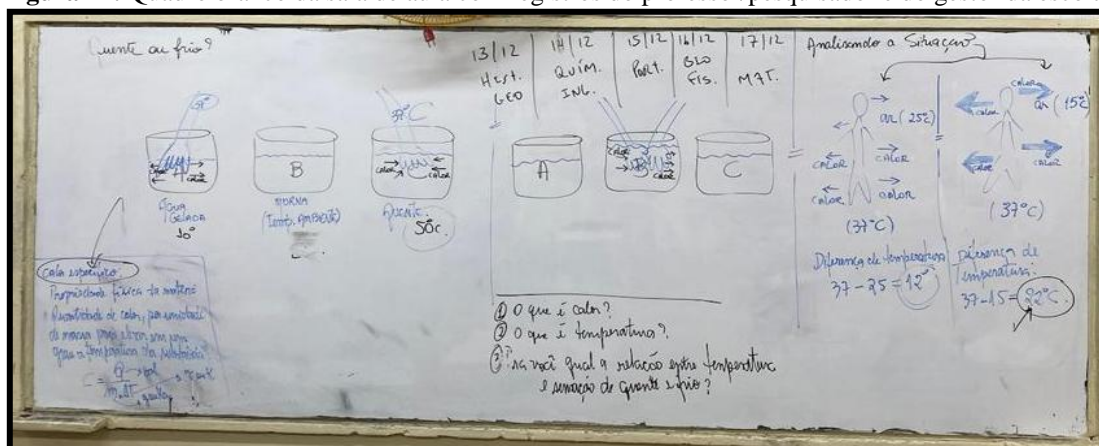 Quente ou frio?
37°
A
CALOR
ÁGUA
GELADA
10°
B
MORNA
(Temp. AMBIENTE)
37°C
C
CALOR
CALOR
QUENTE
50c.
Calor específico:
Propriedade física da matéria
Quantidade de calor, por unidade
de massa para elevar em um
grau a temperatura da substância
C = Q
m.ΔT
13/12
HIST.
GEO
14/12
QUÍM.
ING.
15/12
PORT.
16/12
BIO
FIS.
17/12
MAT.
A
CALOR
B
CALOR
C
① O que é calor?
② O que é temperatura?
③ Pra você qual a relação entre temperatura
e sensação de quente e frio?
Analisando a Situação
ar (25°C)
CALOR
CALOR
CALOR
CALOR
(37°C)
Diferença de temperatura
37-25=12°
CALOR
CALOR
ar (15°C)
CALOR
CALOR
(37°C)
Diferença de
temperatura:
37-15=22°C.